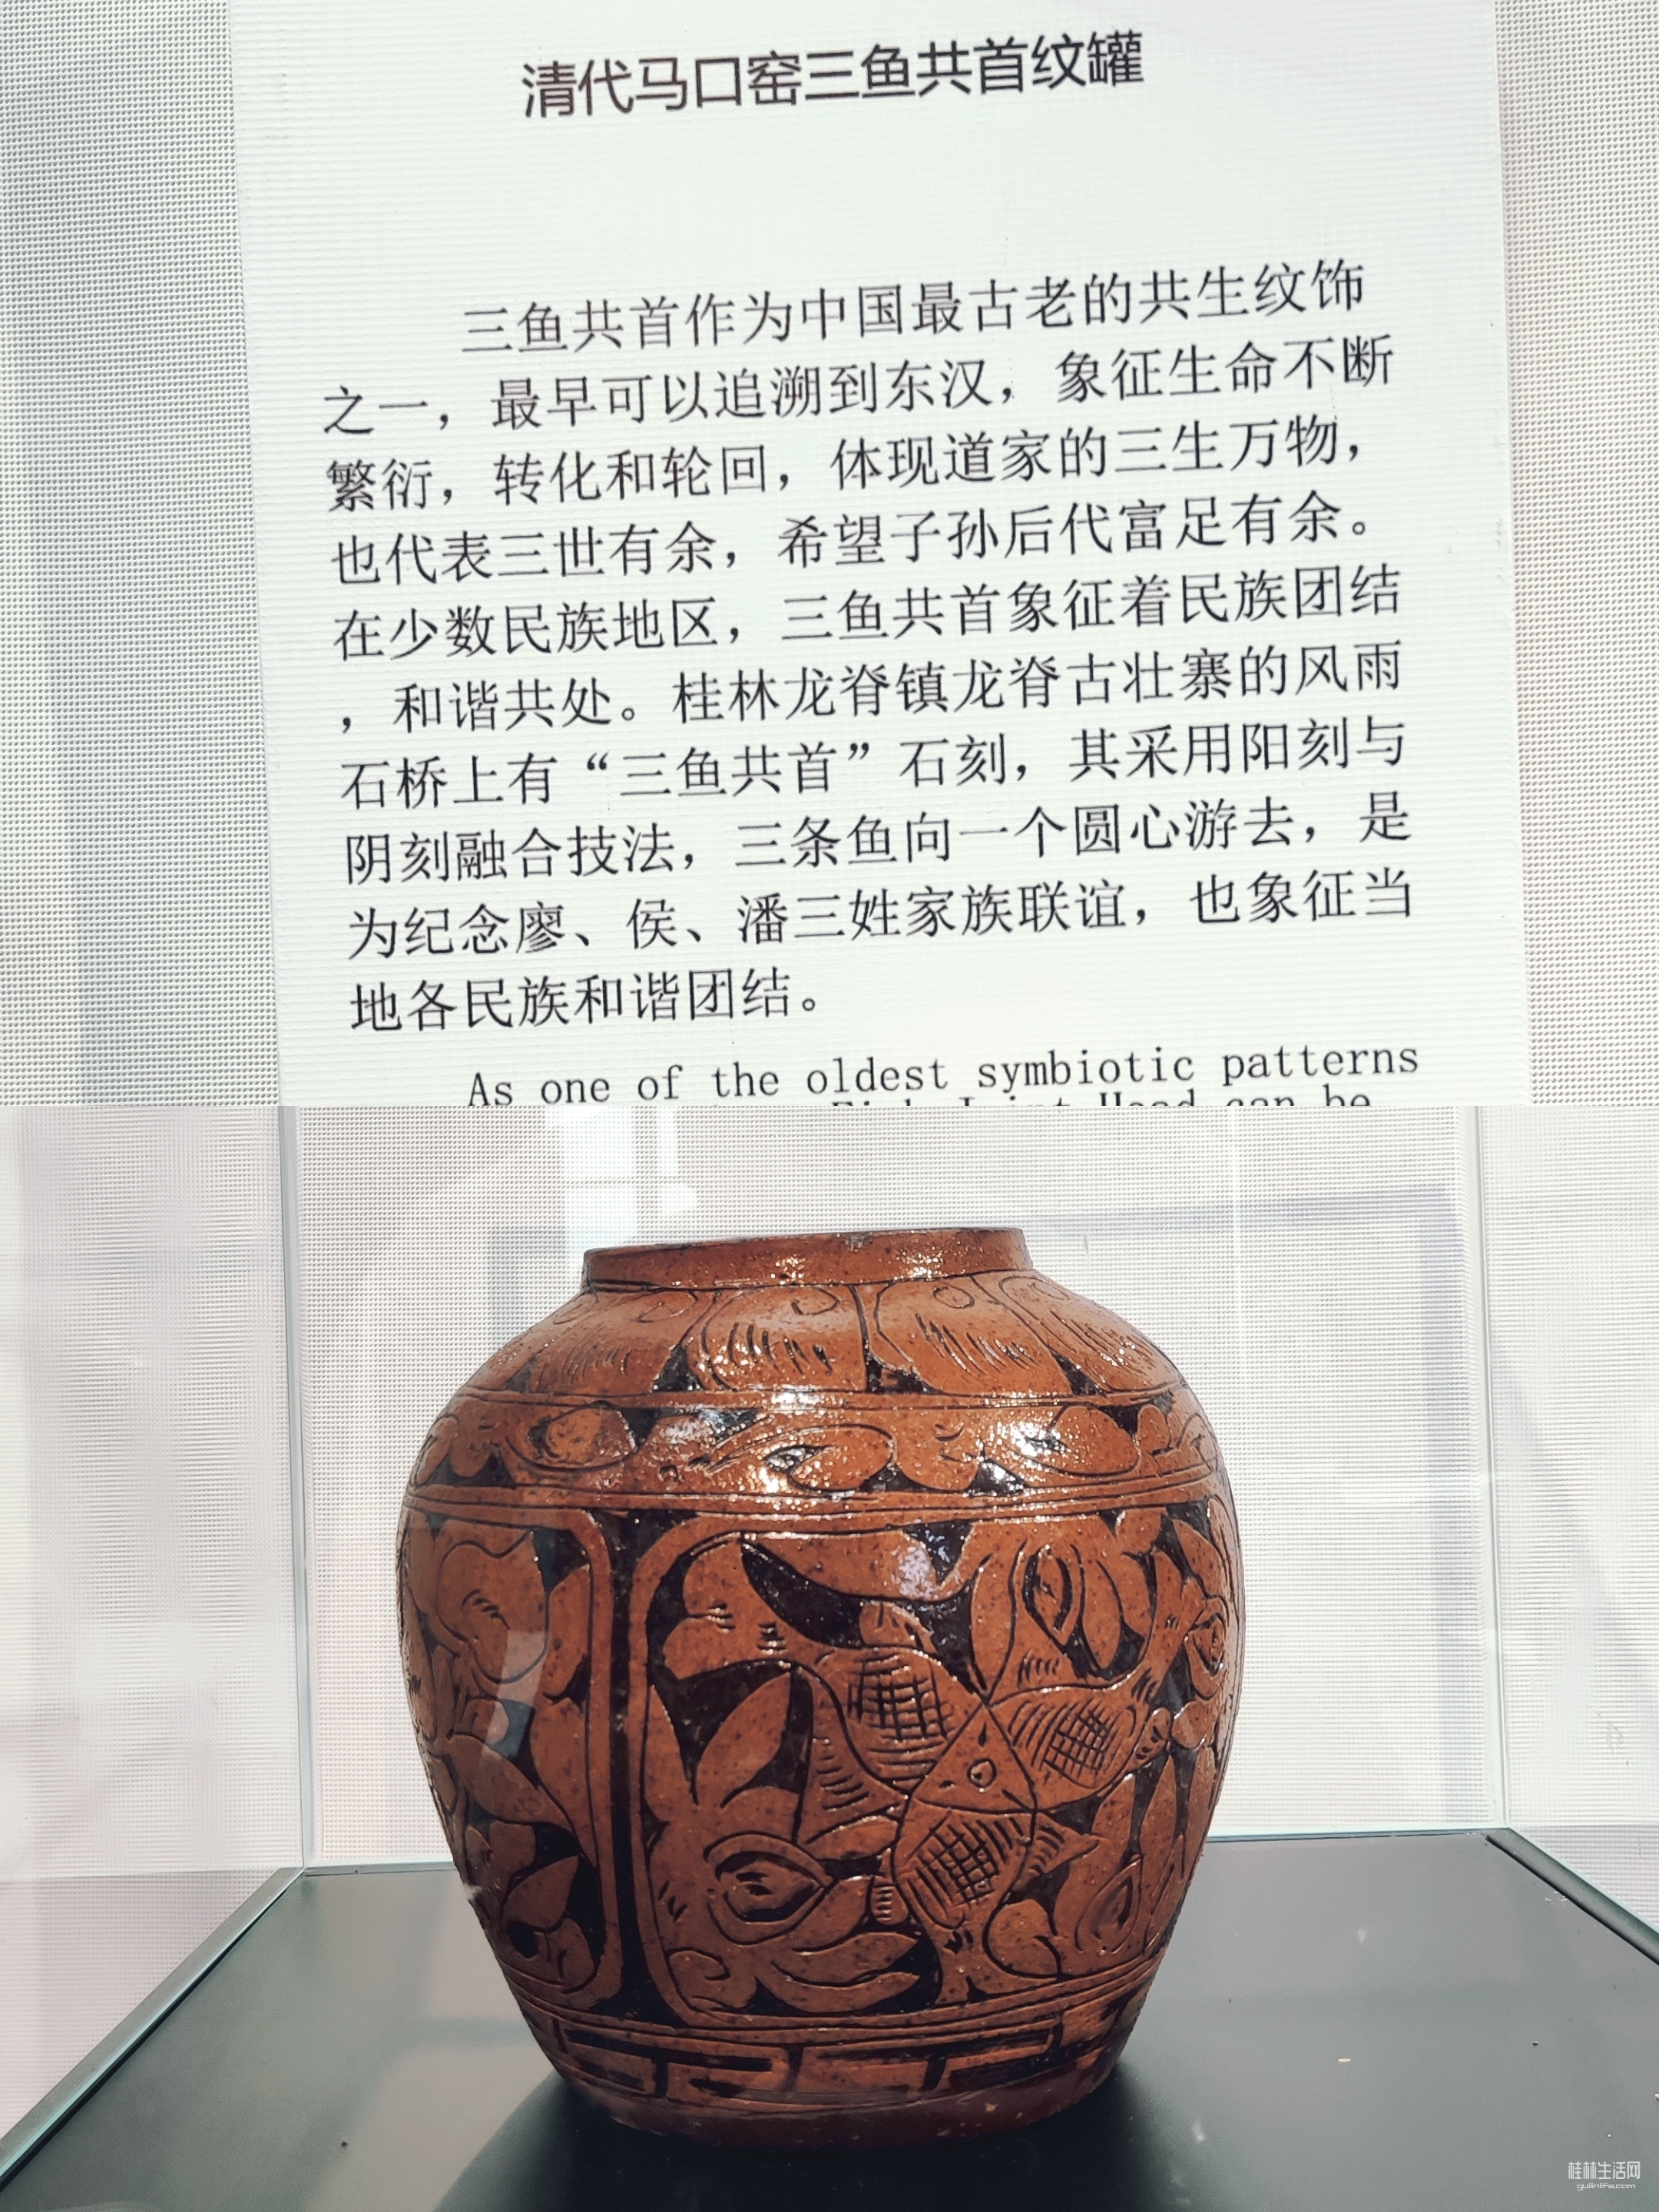 清代马口窑三鱼共首纹罐
三鱼共首作为中国最古老的共生纹饰
之一，最早可以追溯到东汉，象征生命不断
繁衍，转化和轮回，体现道家的三生万物，
也代表三世有余，希望子孙后代富足有余。
在少数民族地区，三鱼共首象征着民族团结
，和谐共处。桂林龙脊镇龙脊古壮寨的风雨
石桥上有“三鱼共首”石刻，其采用阳刻与
阴刻融合技法，三条鱼向一个圆心游去，是
为纪念廖、侯、潘三姓家族联谊，也象征当
地各民族和谐团结。
As one of the oldest symbiotic patterns
Fish Joint Head can be
桂林生活网
guilinlife.com